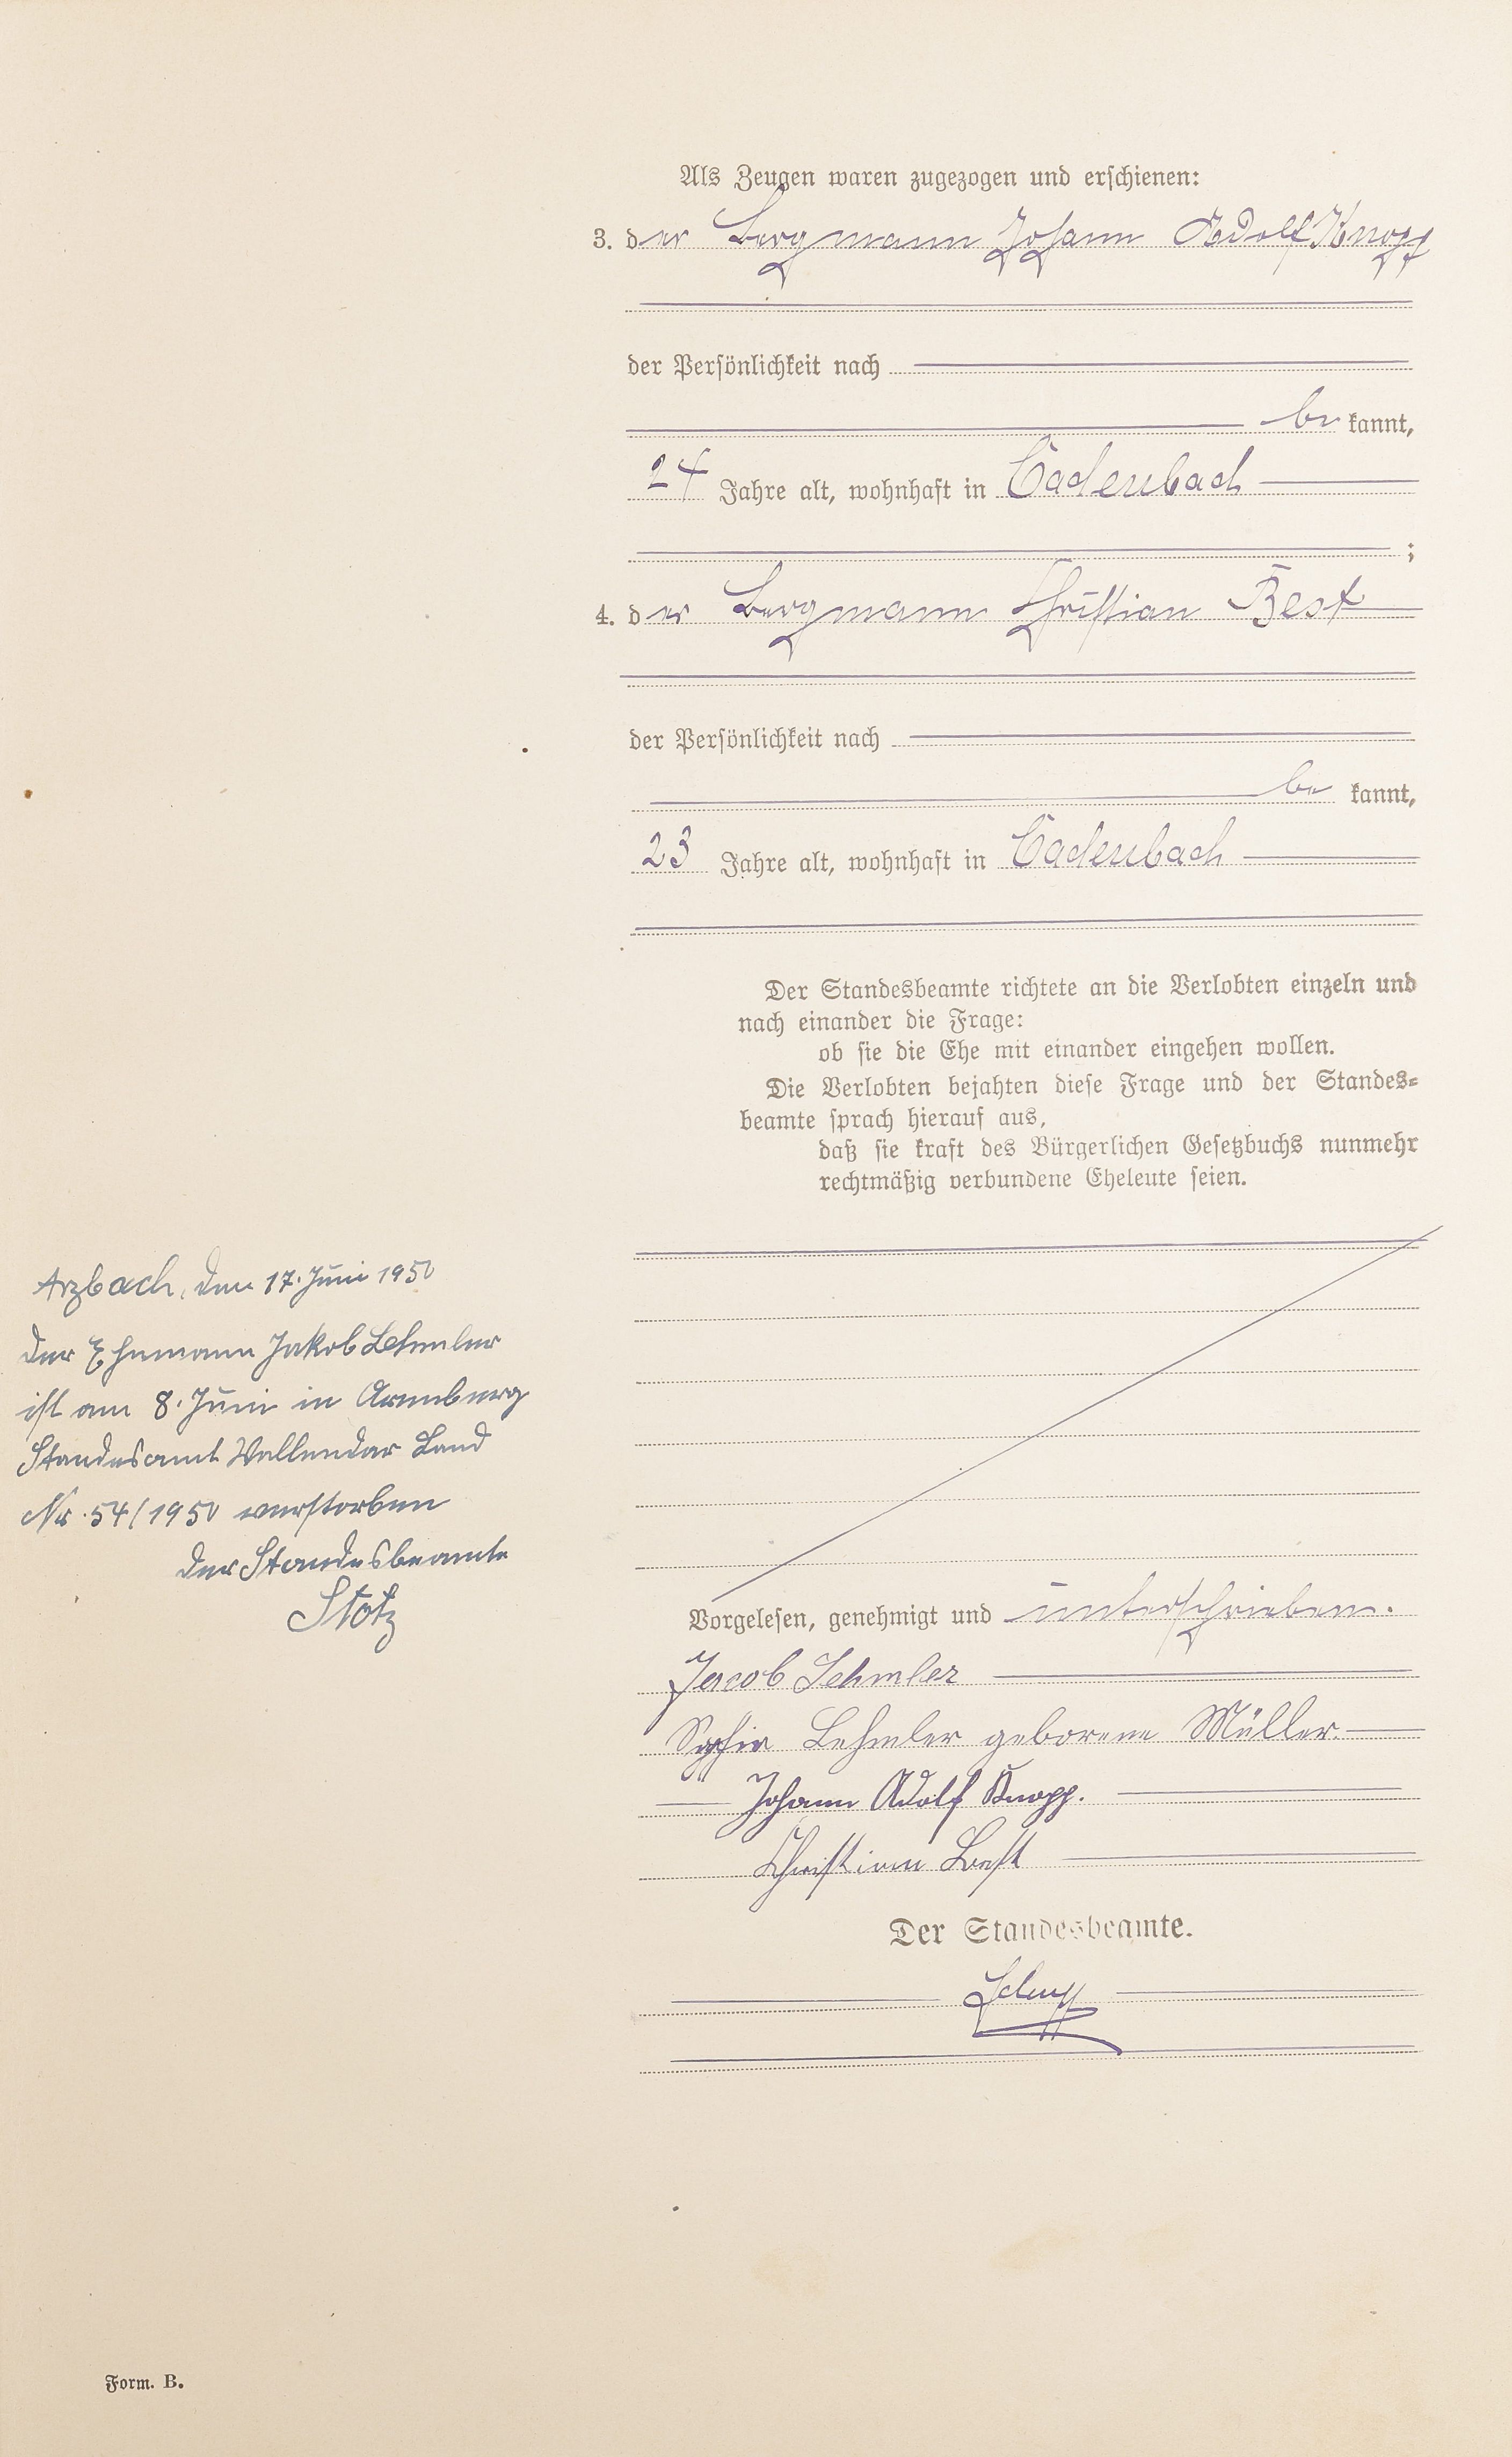 Als Zeugen waren zugezogen und erschienen:
3. der Bergmann Johann Adolf Knopp
der Persönlichkeit nach
be kannt,
24 Jahre alt, wohnhaft in Cadenbach
;
4. der Bergmann Christian Best
der Persönlichkeit nach
be kannt,
23 Jahre alt, wohnhaft in Cadenbach
Der Standesbeamte richtete an die Verlobten einzeln und
nach einander die Frage:
ob sie die Ehe mit einander eingehen wollen.
Die Verlobten bejahten diese Frage und der Standes=
beamte sprach hierauf aus,
daß sie kraft des Bürgerlichen Gesetzbuchs nunmehr
rechtmäßig verbundene Eheleute seien.
Arzbach, den 17. Juni 1950
Der Ehemann Jakob Lehmler
ist am 8. Juni in Arenberg
Standesamt Vallendar Land
Nr. 54/1950 verstorben
Der Standesbeamte
Stotz
Vorgelesen, genehmigt und unterschrieben.
Jacob Lehmler
Sophie Lehmler geborene Müller.
Johann Adolf Knopp.
Christian Best
Der Standesbeamte.
Form. B.